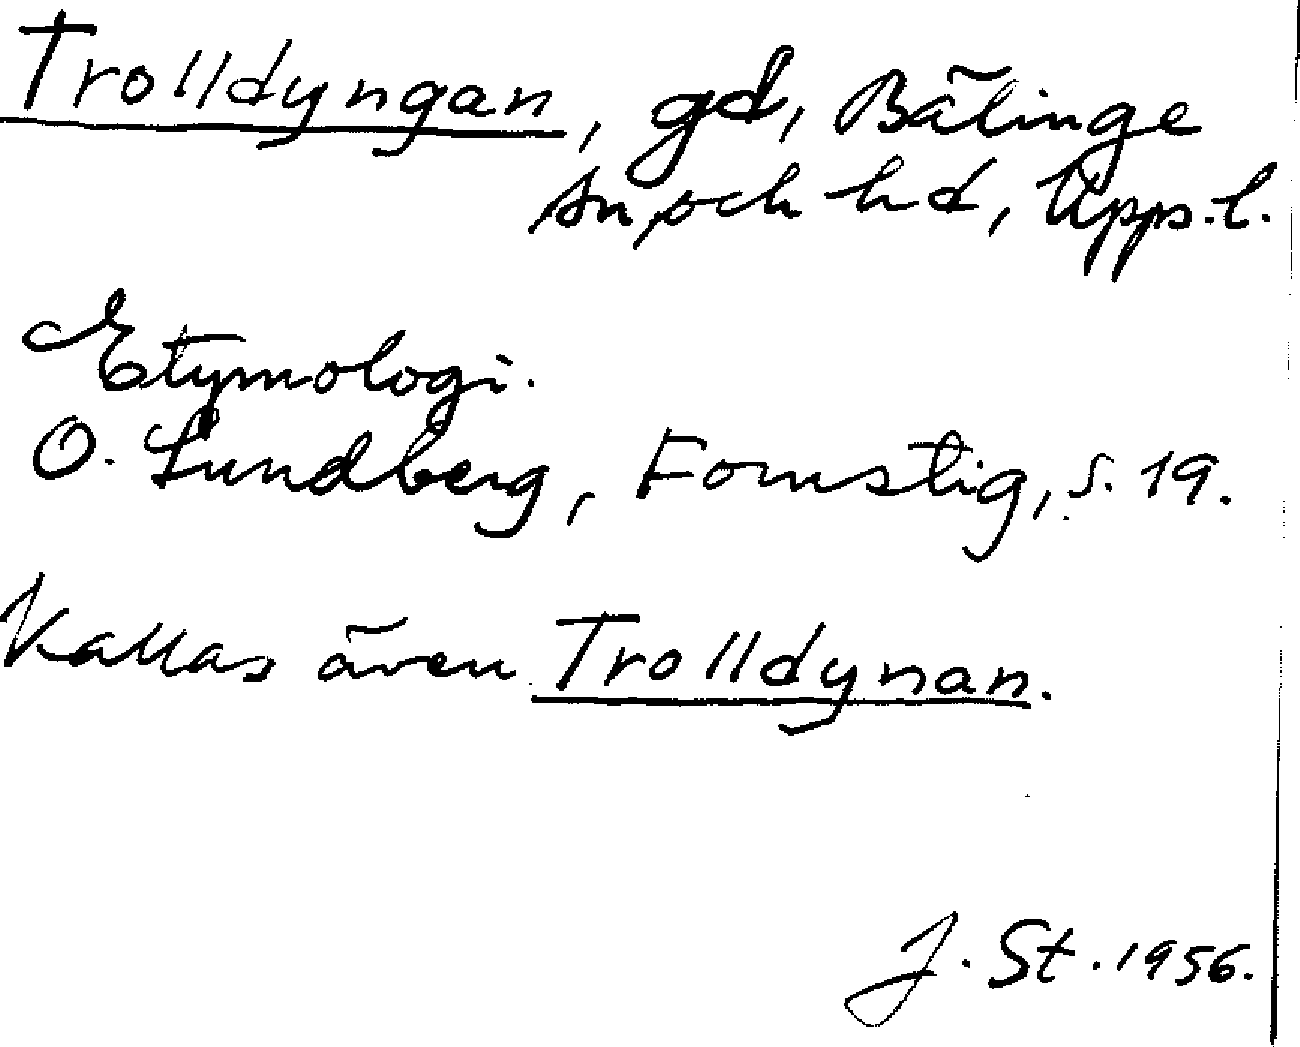 Trolldyngan, gd, Bälinge
sn, och hd, Upps. l.
Etymologi.
O. Lundberg, Fornstig, s. 19.
Kallas även Trolldynan.
J. St. 1956.